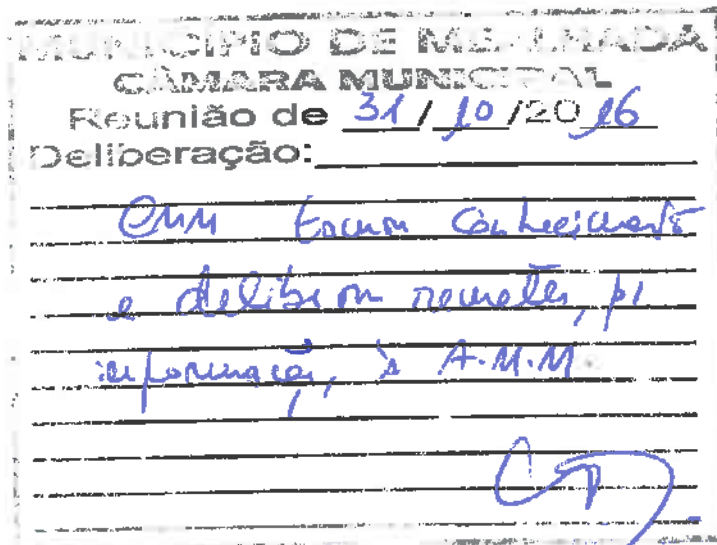 MUNICÍPIO DE MEALHADA
CÂMARA MUNICIPAL
Reunião de 31/10/2016
Deliberação:
CMM tomou conhecimento
e deliberou remeter, p/
informação, à A.M.M